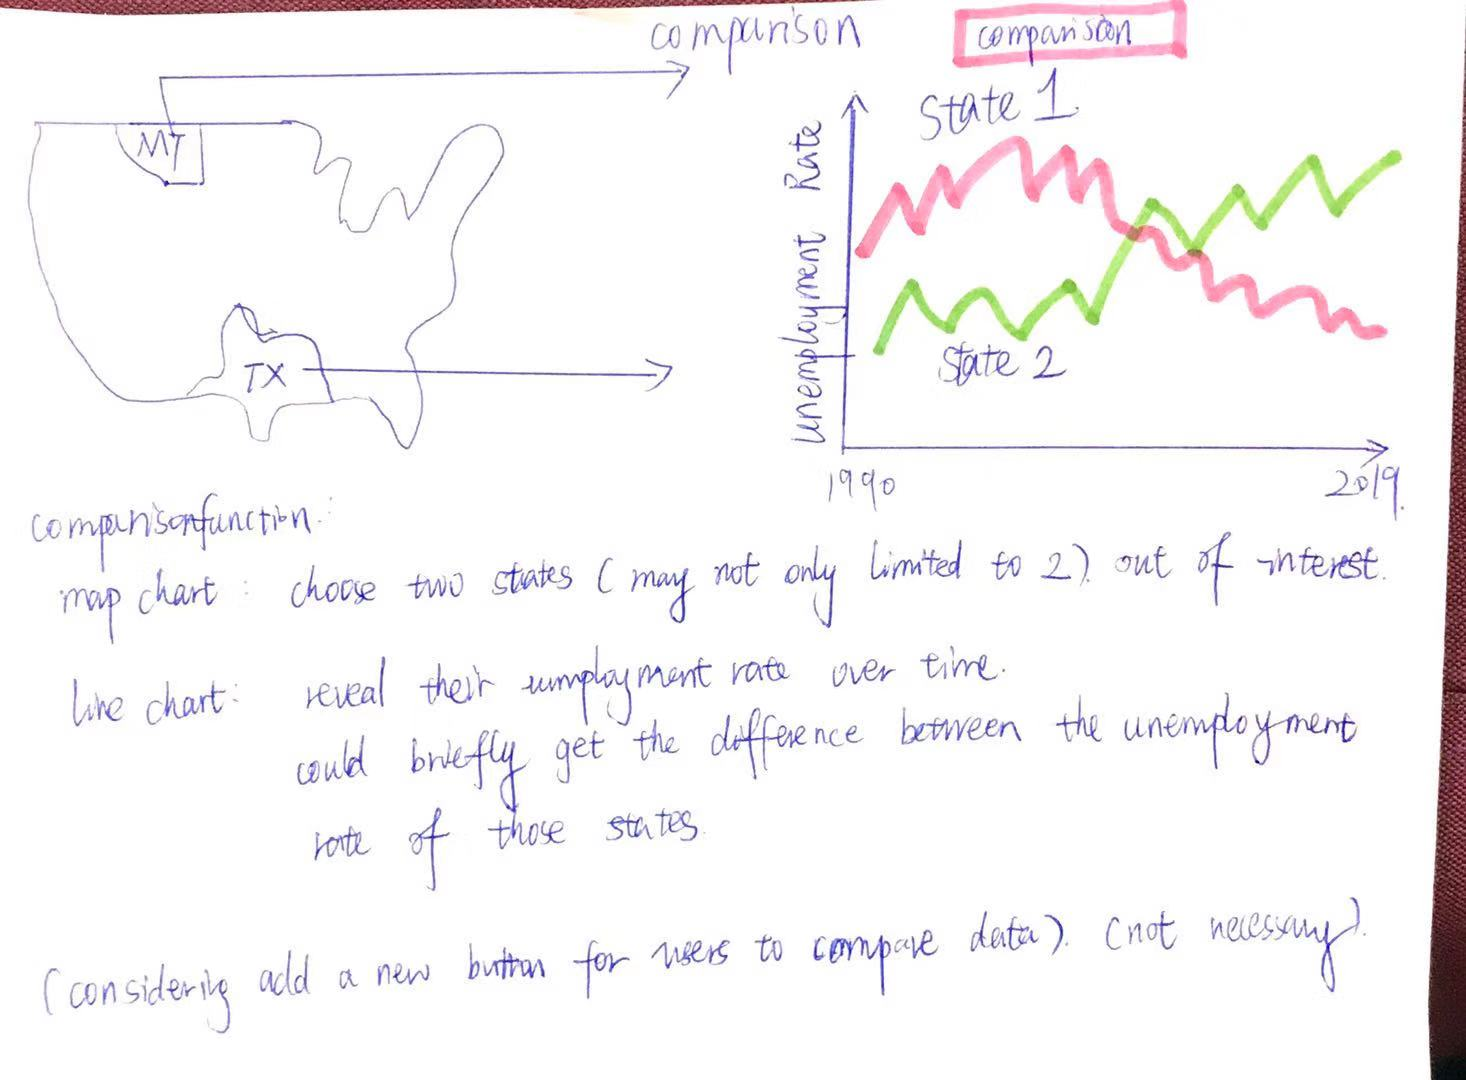 comparison
comparision
MT
TX
State 1
Unemployment Rate
State 2
1990
2019.
comparisonfunction:
map chart: choose two states (may not only limited to 2) out of interest.
line chart: reveal their uumployment rate over time.
could briefly get the difference between the unemployment
rate of those states.
(considering add a new button for users to compare data). (not necessary).